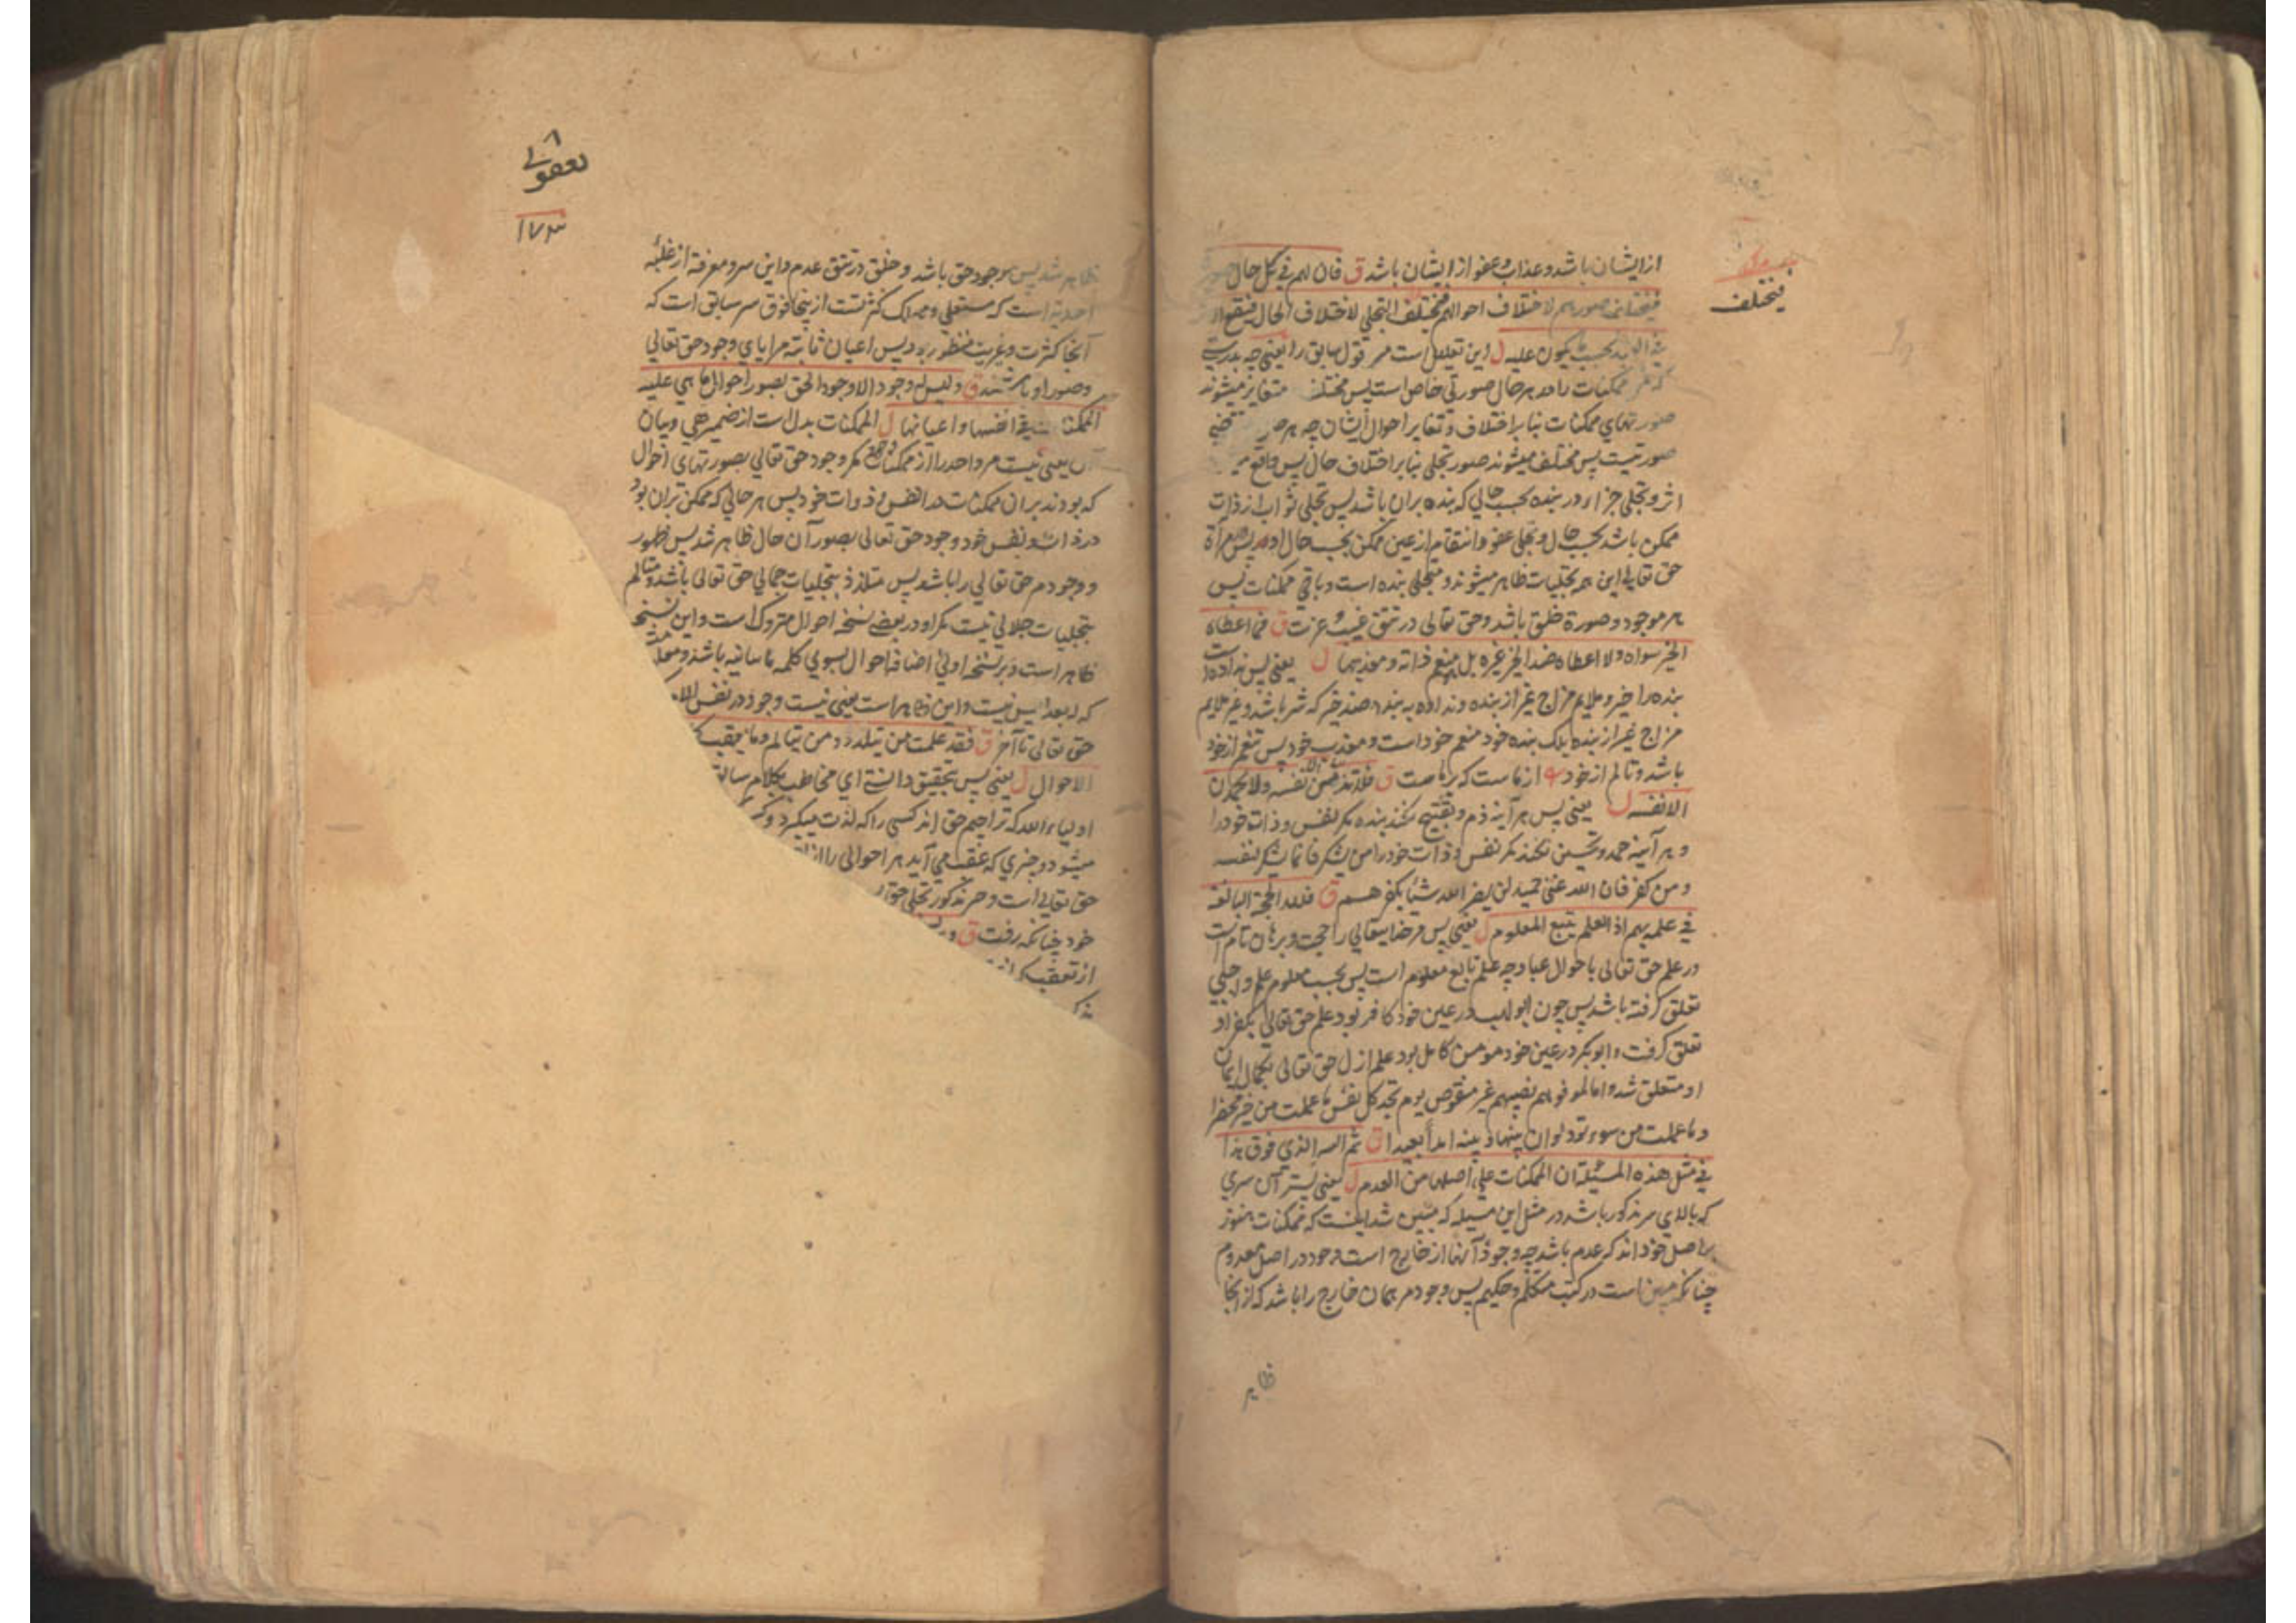 ازایشان باشد و عذاب و عفو ازایشان باشد ق فان لهم فی کل حال صورة
فیختلف صورهم لاختلاف احوالهم فیختلف التجلی لاختلاف الحال فیقع الاثر
فیختلف
فی العبد بحسب ما یکون علیه ل این تعلیل است مر قول سابق را یعنی چه بدرستی
که مر ممکنات را در هر حال صورتی خاص است پس مختلف متغایر میشوند
صورتهای ممکنات بنا بر اختلاف و تغایر احوال ایشان چه هر
صورتیست پس مختلف میشوند صور تجلی بنا بر اختلاف حال پس واقع
اثر و تجلی جزاء در بنده بحسب حالی که بنده بران باشد پس تجلی ثواب از ذات
ممکن باشد بحسب حال و تجلی عفو و انتقام از عین ممکن بحسب حال او مرآة
حق تعالی این همه تجلیات ظاهر میشوند و متجلی بنده است و باقی ممکنات پس
هر موجود و صورة خلق باشد و حق تعالی در تتق غیب و عزت ق فما اعطاه
الخیر سواه ولا اعطاه ضد الخیر غیره بل هو منعم ذاته و معذبها ل یعنی پس نداده است
بنده را خیر و ملایم مزاج غیر از بنده و نداده به بنده ضد خیر که شر باشد و غیر ملایم
مزاج غیر از بنده بلک بنده خود منعم خود است و معذب خود پس تنعم از خود
باشد و تالم از خود ع از ماست که بر ماست ق فلا تذمن الا نفسه ولا یحمدن
الا نفسه ل یعنی پس هر آینه ذم و تقبیح نکند بنده مگر نفس و ذات خود را
و هر آینه حمد و تحسین نکند مگر نفس و ذات خود را من یشکر فانما یشکر لنفسه
و من کفر فان الله غنی حمید لن یضر الله شیئا بکفرهم ق فلله الحجة البالغة
فی علمه بهم اذ العلم یتبع المعلوم ل یعنی پس مر خدایتعالی را حجت و برهان تام است
در علم حق تعالی باحوال عباد چه علم تابع معلوم است پس بحسب معلوم علم واجبی
تعلق گرفته باشد پس چون ابو لهب در عین خود کافر بود علم حق تعالی بکفر او
تعلق گرفت و ابوبکر در عین خود مومن کامل بود علم ازل حق تعالی بکمال ایمان
او متعلق شد و انا لموفوهم نصیبهم غیر منقوص یوم تجد کل نفس ما عملت من خیر محضرا
و ما عملت من سوء تود لو ان بینها و بینه امدا بعیدا ق ثم السر الذی فوق هذا
فی مثل هذه المسئلة ان الممکنات علی اصلها من العدم ل یعنی پستر آن سری
که بالای سر مذکور باشد در مثل این مسئله که مبین شد اینست که ممکنات هنوز
بر اصل خود اند که عدم باشد چه وجود آنها از خارج است و خود در اصل معدوم
چنانکه مبین است در کتب متکلم و حکیم پس وجود مر همان خارج را باشد که از آنجا
ظاهر
یعقوبی
۱۷۳
ظاهر شد پس موجود حق باشد و خلق در تتق عدم و این سر و معرفة از غلبه
احدیة است که مستعلی و مهلک کثرتست از ینجا فوق سر سابق است که
آنجا کثرت و غیریت منظور بود پس اعیان ثابته مرایای وجود حق تعالی
و صور او باشند ق و لیس وجود الا وجود الحق بصور احوال ما هی علیه
الممکنات فی انفسها و اعیانها ل الممکنات بدل است از ضمیر هی و بیان
آن یعنی نیست مر واحد را از ممکنات مگر وجود حق تعالی بصورتهای احوال
که بودند بران ممکنات در انفس و ذوات خود پس هر حالی که ممکن بران بود
در ذات و نفس خود وجود حق تعالی بصور آن حال ظاهر شد پس ظهور
و وجود مر حق تعالی را باشد پس متلذذ بتجلیات جمالی حق تعالی باشد و متالم
بتجلیات جلالی نیست مگر او و در بعضی نسخه احوال متروک است و این نسخه
ظاهر است و بر نسخه اولی اضافه احوال بسوی کلمه ما بیانیه باشد و
که لبعد ایس نیست و این ظاهر است یعنی نیست وجود در نفس الامر
حق تعالی تا آخر ق فقد علمت من یتلذذ و من یتالم و ما یعقب
الاحوال ل یعنی پس بتحقیق دانستی ای مخاطب بکلام
اولیاء الله که تراجم حق اند کسی را که لذت میگیرد و
میشود و چیزی که عقب می آید هر احوالی را
حق تعالی است و هر مذکور تجلی حق
خود چنانکه رفت ق و
از تعقب